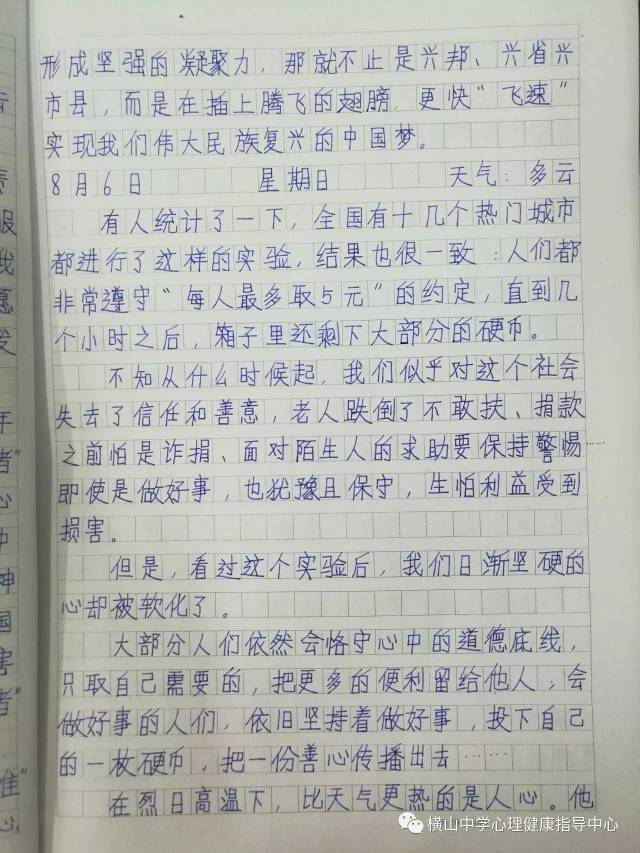 形成坚强的凝聚力，那就不止是兴邦、兴省兴
市县，而是在插上腾飞的翅膀，更快“飞速”
实现我们伟大民族复兴的中国梦。
8月6日 星期日 天气：多云
有人统计了一下，全国有十几个热门城市
都进行了这样的实验，结果也很一致：人们都
非常遵守“每人最多取5元”的约定，直到几
个小时之后，箱子里还剩下大部分的硬币。
不知从什么时候起，我们似乎对这个社会
失去了信任和善意，老人跌倒了不敢扶、捐款
之前怕是诈捐、面对陌生人的求助要保持警惕……
即使是做好事，也犹豫且保守，生怕利益受到
损害。
但是，看过这个实验后，我们日渐坚硬的
心却被软化了。
大部分人们依然会恪守心中的道德底线，
只取自己需要的，把更多的便利留给他人；会
做好事的人们，依旧坚持着做好事，投下自己
的一枚硬币，把一份善心传播出去……
在烈日高温下，比天气更热的是人心。他
横山中学心理健康指导中心